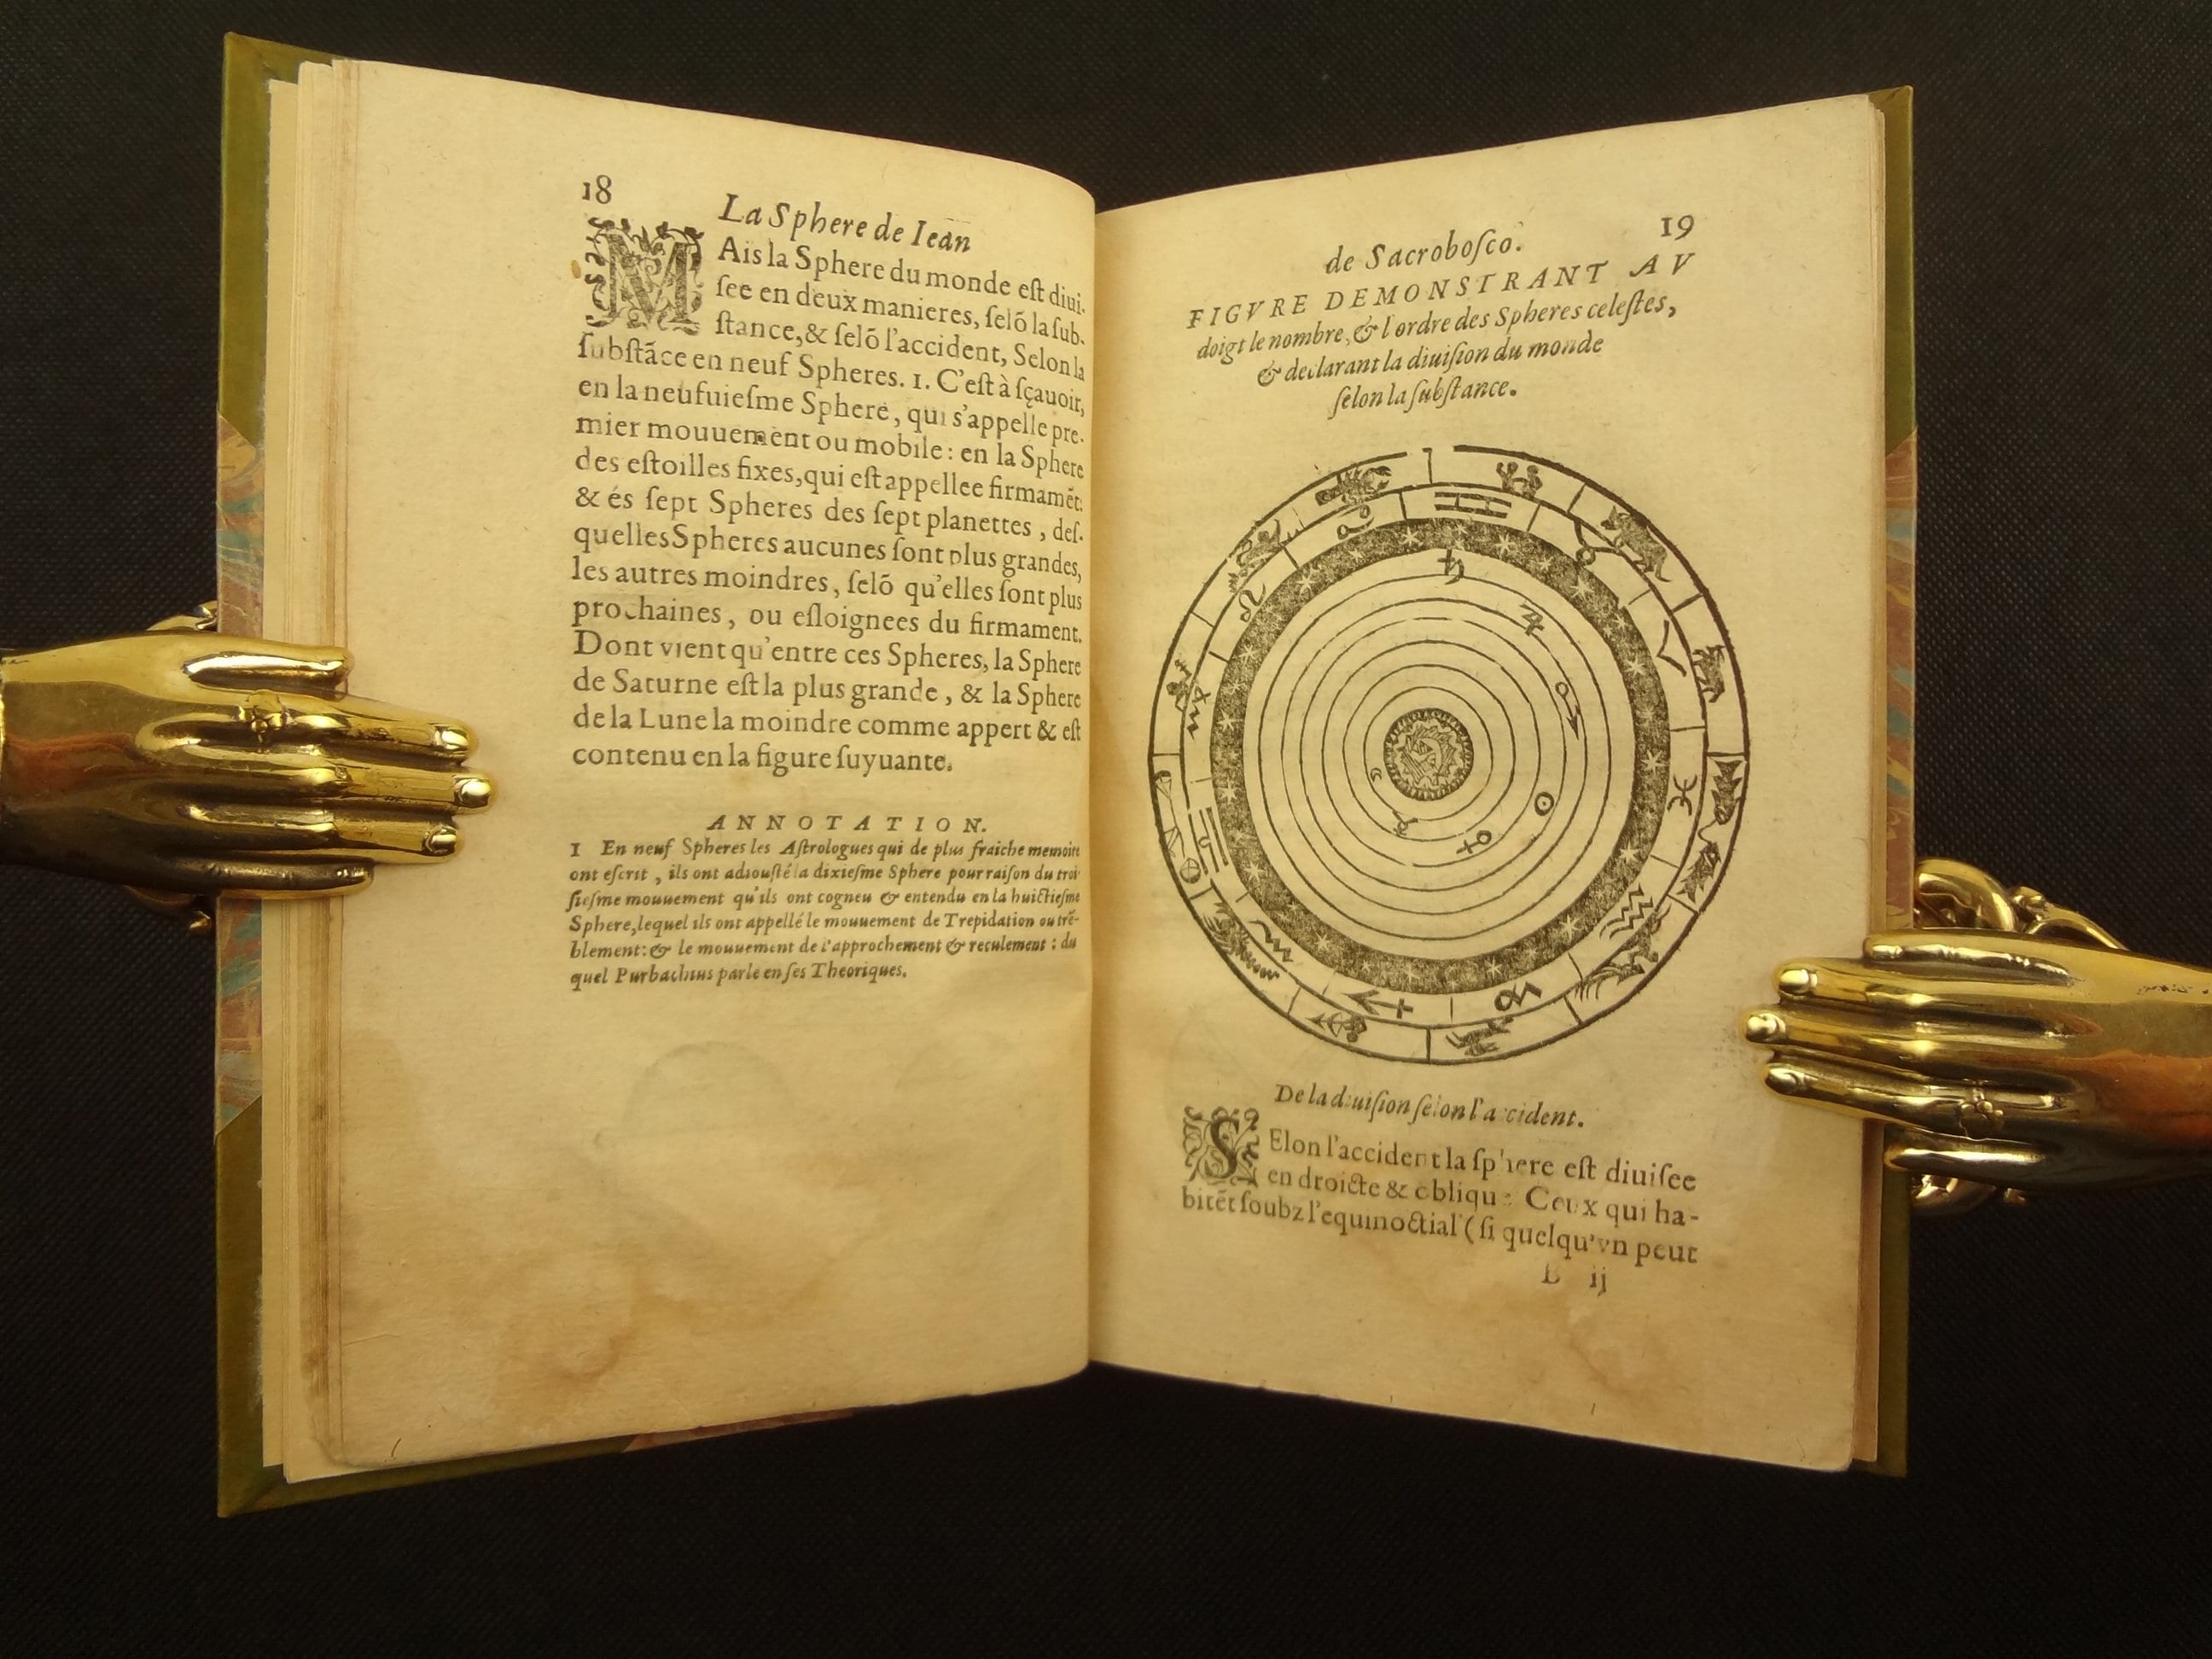 18
La Sphere de Iean
MAis la Sphere du monde eſt diui-
ſee en deux manieres, ſelō la ſub-
ſtance, & ſelō l'accident, Selon la
ſubſtāce en neuf Spheres. 1. C'eſt à ſçauoir,
en la neufuieſme Sphere, qui s'appelle pre-
mier mouuement ou mobile : en la Sphere
des eſtoilles fixes, qui eſt appellee firmamēt:
& és ſept Spheres des ſept planettes, deſ-
quelles Spheres aucunes ſont plus grandes,
les autres moindres, ſelō qu'elles ſont plus
prochaines, ou eſloignees du firmament.
Dont vient qu'entre ces Spheres, la Sphere
de Saturne eſt la plus grande, & la Sphere
de la Lune la moindre comme appert & eſt
contenu en la figure ſuyuante.
ANNOTATION.
1 En neuf Spheres les Aſtrologues qui de plus fraiche memoire
ont eſcrit, ils ont adiouſté la dixieſme Sphere pour raiſon du troi
ſieſme mouuement qu'ils ont cogneu & entendu en la huictieſme
Sphere, lequel ils ont appellé le mouuement de Trepidation ou trē-
blement: & le mouuement de l'approchement & reculement : du
quel Purbachius parle en ſes Theoriques.
19
de Sacroboſco.
FIGVRE DEMONSTRANT AV
doigt le nombre, & l'ordre des Spheres celeſtes,
& declarant la diuiſion du monde
ſelon la ſubſtance.
♋ ♊ ♉ ♌ ♄ ♃ ♈ ♍ ♂ ♓ ☾ ☉ ☿ ♀ ♎ ♒ ♏ ♐ ♑
De la diuiſion ſelon l'accident.
SElon l'accident la ſphere eſt diuiſee
en droicte & oblique. Ceux qui ha-
bitēt ſoubz l'equinoctial (ſi quelqu'vn peut
B ij